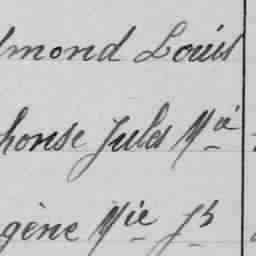 lmond Louis
honse Jules Mie
gène Mie Jh